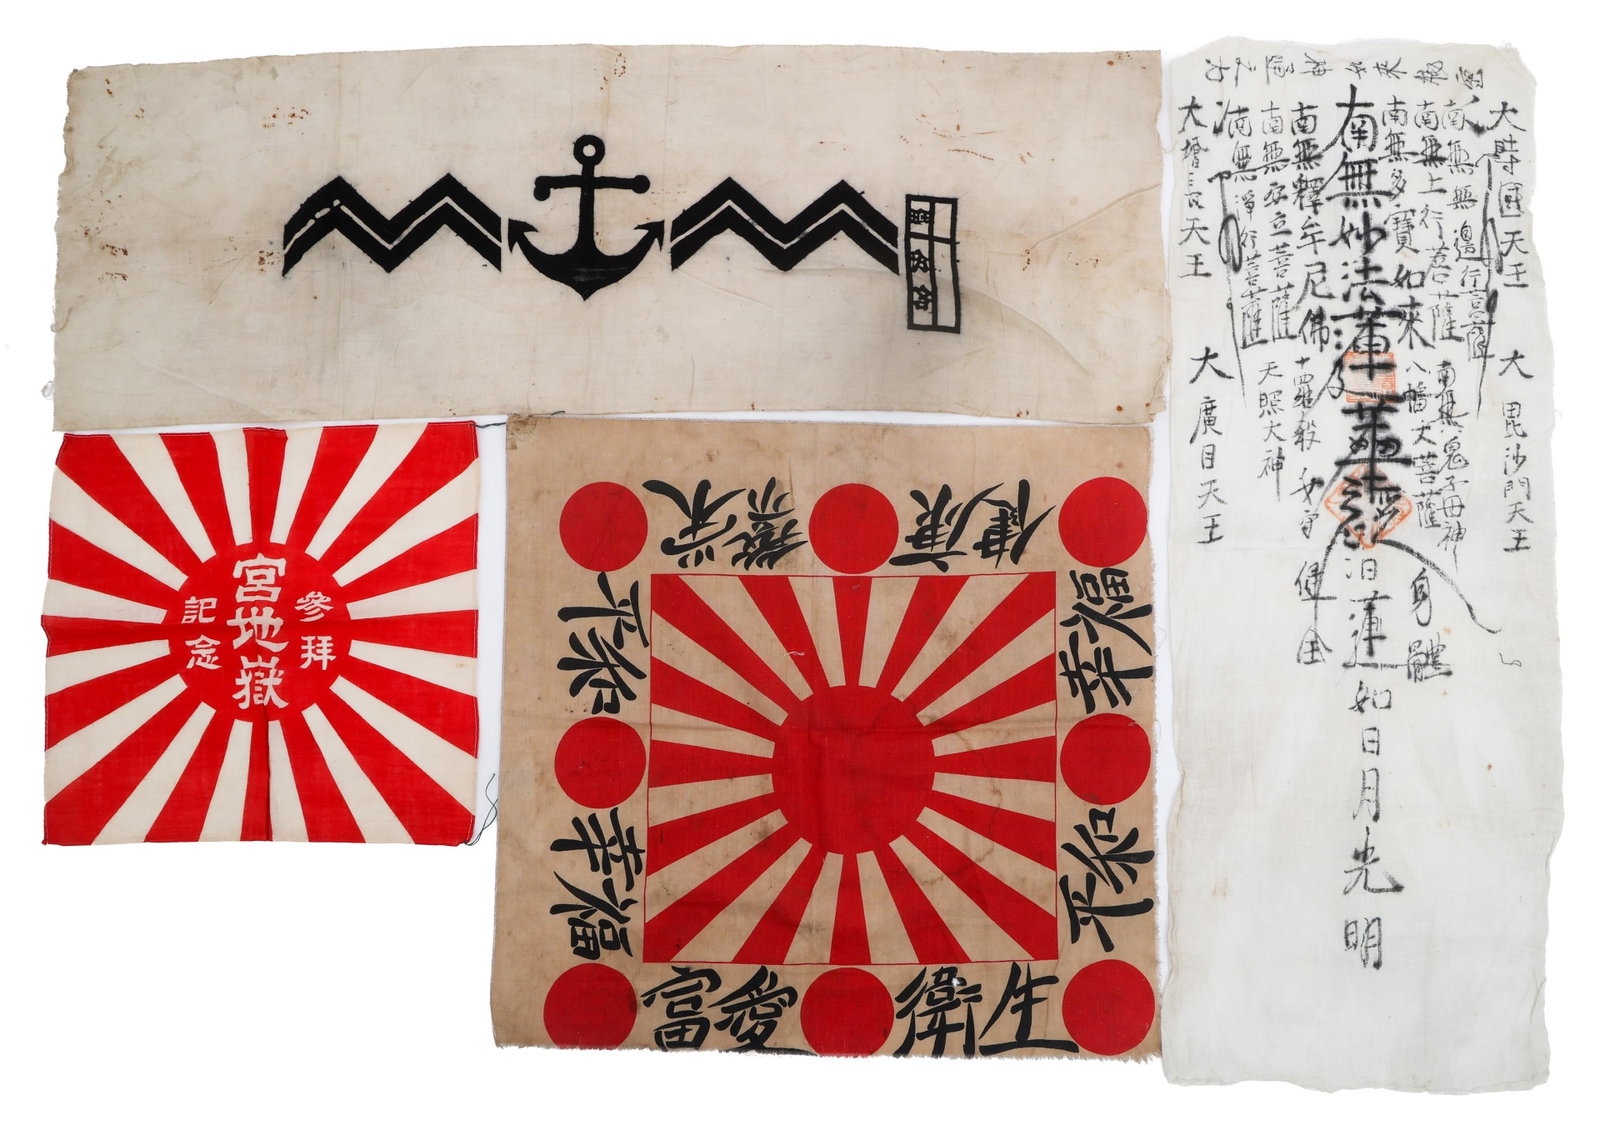 宮地嶽
參拜
記念
繁栄
健康
幸福
平和
平和
幸福
富愛
衛生
大持國天王
南無無邊行菩薩
南無上行菩薩
南無多寶如來
南無妙法蓮華經
南無釋牟尼佛
南無安立菩薩
南無淨行菩薩
大增長天王
大毘沙門天王
南無鬼子母神
八幡大菩薩
天照大神
大廣目天王
身體
健全
如日月光明